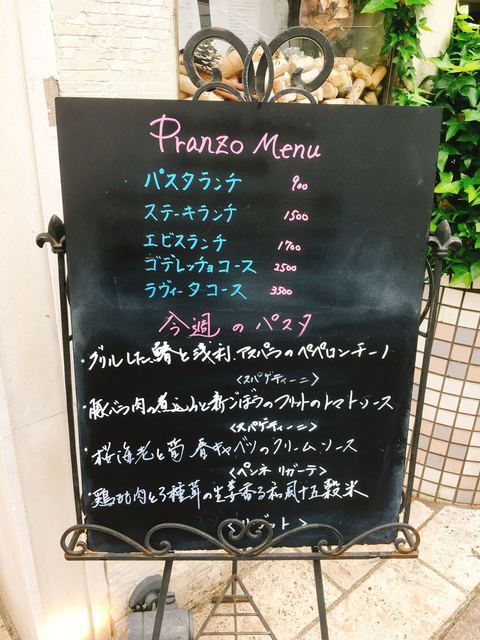 Pranzo Menu
パスタランチ 900
ステーキランチ 1500
エビスランチ 1700
ゴデレッチョコース 2500
ラヴィータコース 3500
今週のパスタ
・グリルした鰆と浅利、アスパラのペペロンチーノ
<スパゲティーニ>
・豚バラ肉の煮込みと新ごぼうのフリットのトマトソース
<スパゲティーニ>
・桜海老と筍、春キャベツのクリームソース
<ペンネ リガーテ>
・鶏もも肉と3種茸の生姜香る和風十五穀米
<リゾット>